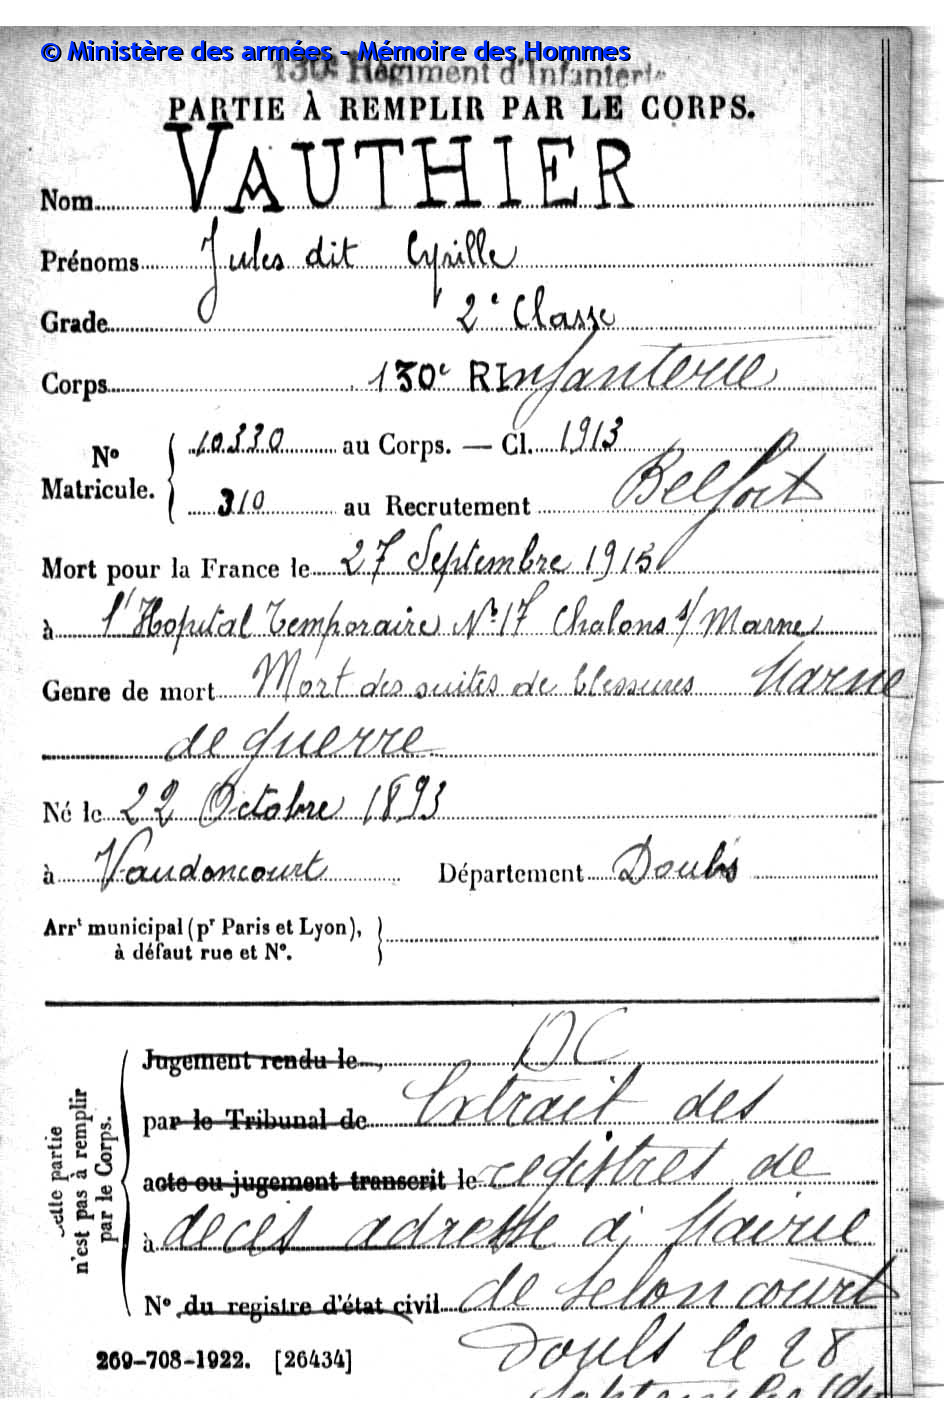 © Ministère des armées - Mémoire des Hommes
130e Régiment d'Infanterie
PARTIE À REMPLIR PAR LE CORPS.
Nom VAUTHIER
Prénoms Jules dit Cyrille
Grade 2e Classe
Corps 130e RInfanterie
No Matricule. 10330 au Corps. — Cl. 1913
310 au Recrutement Belfort
Mort pour la France le 27 Septembre 1915
à l'Hopital Temporaire No 17 Chalons s/ Marne
Genre de mort Mort des suites de blessures Marne
de guerre
Né le 22 Octobre 1893
à Vaudoncourt Département Doubs
Arrt municipal (pr Paris et Lyon),
à défaut rue et No.
Cette partie
n'est pas à remplir
par le Corps.
Jugement rendu le DC
par le Tribunal de Extrait des
acte ou jugement transcrit le registres de
à décès adressé à Mairie
No du registre d'état civil de Seloncourt
Doubs le 28
269-708-1922. [26434] Septembre